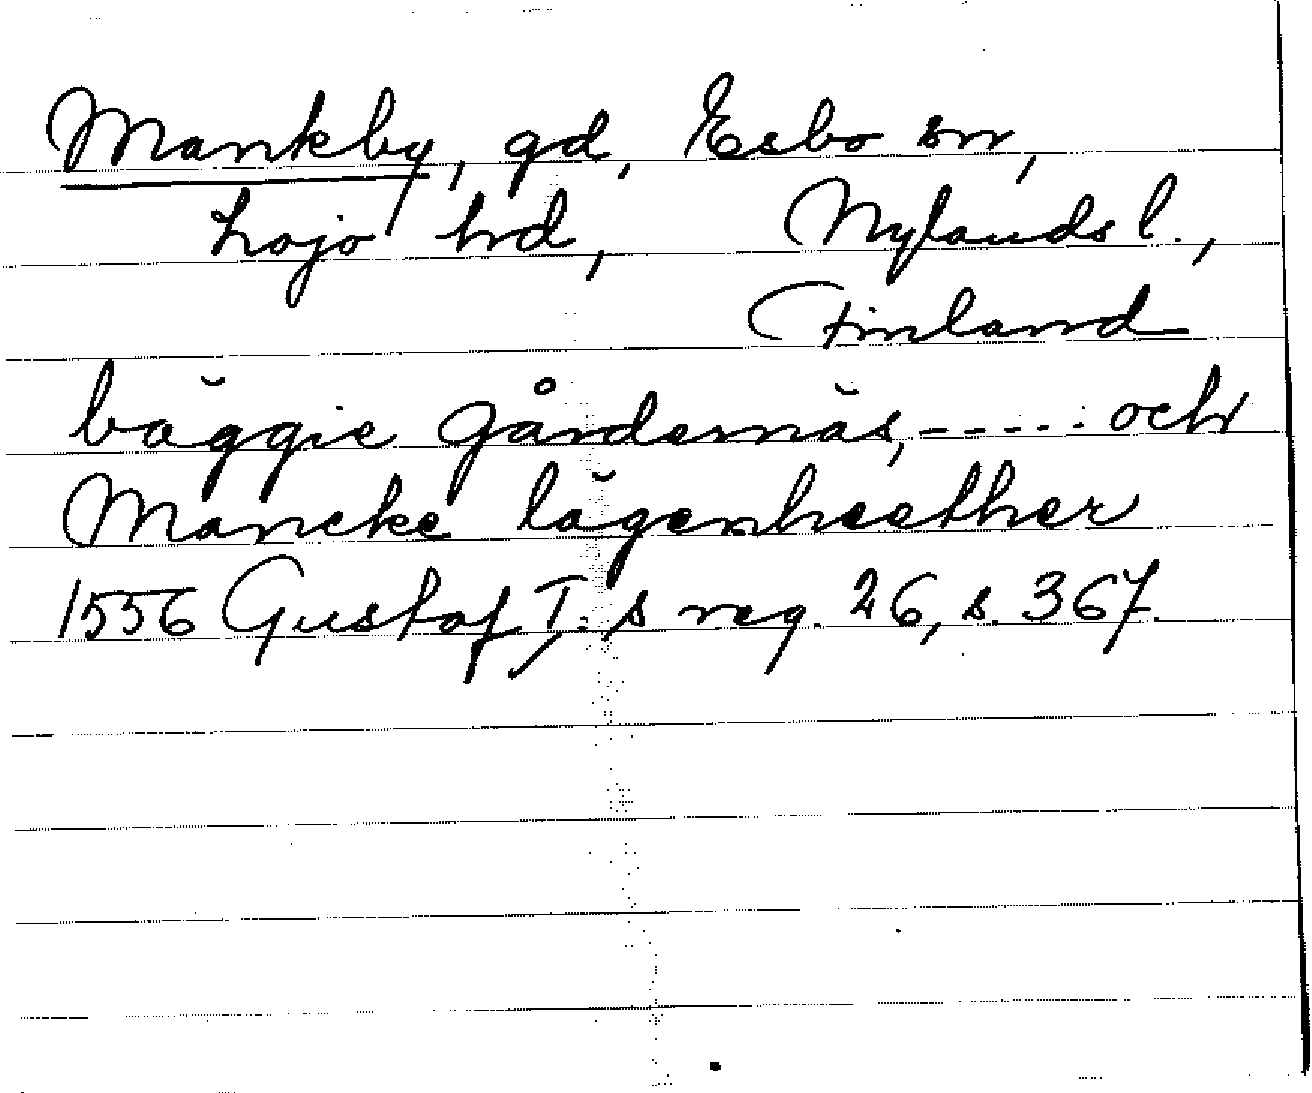 Mankby, gd, Esbo sn,
Lojo hd, Nylands l.,
Finland
bäggie gårdernäs, ----- och
Mancke lägenheether
1556 Gustaf I:s reg. 26, s. 367.